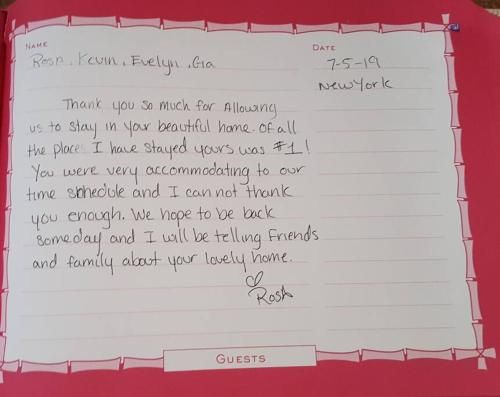 NAME
Rosa, Kevin, Evelyn, Gia
DATE
7-5-19
New York
Thank you so much for Allowing
us to stay in your beautiful home. Of all
the places I have stayed yours was #1!
You were very accommodating to our
time shhedule and I can not thank
you enough. We hope to be back
someday and I will be telling Friends
and family about your lovely home.
♡
Rosa
GUESTS